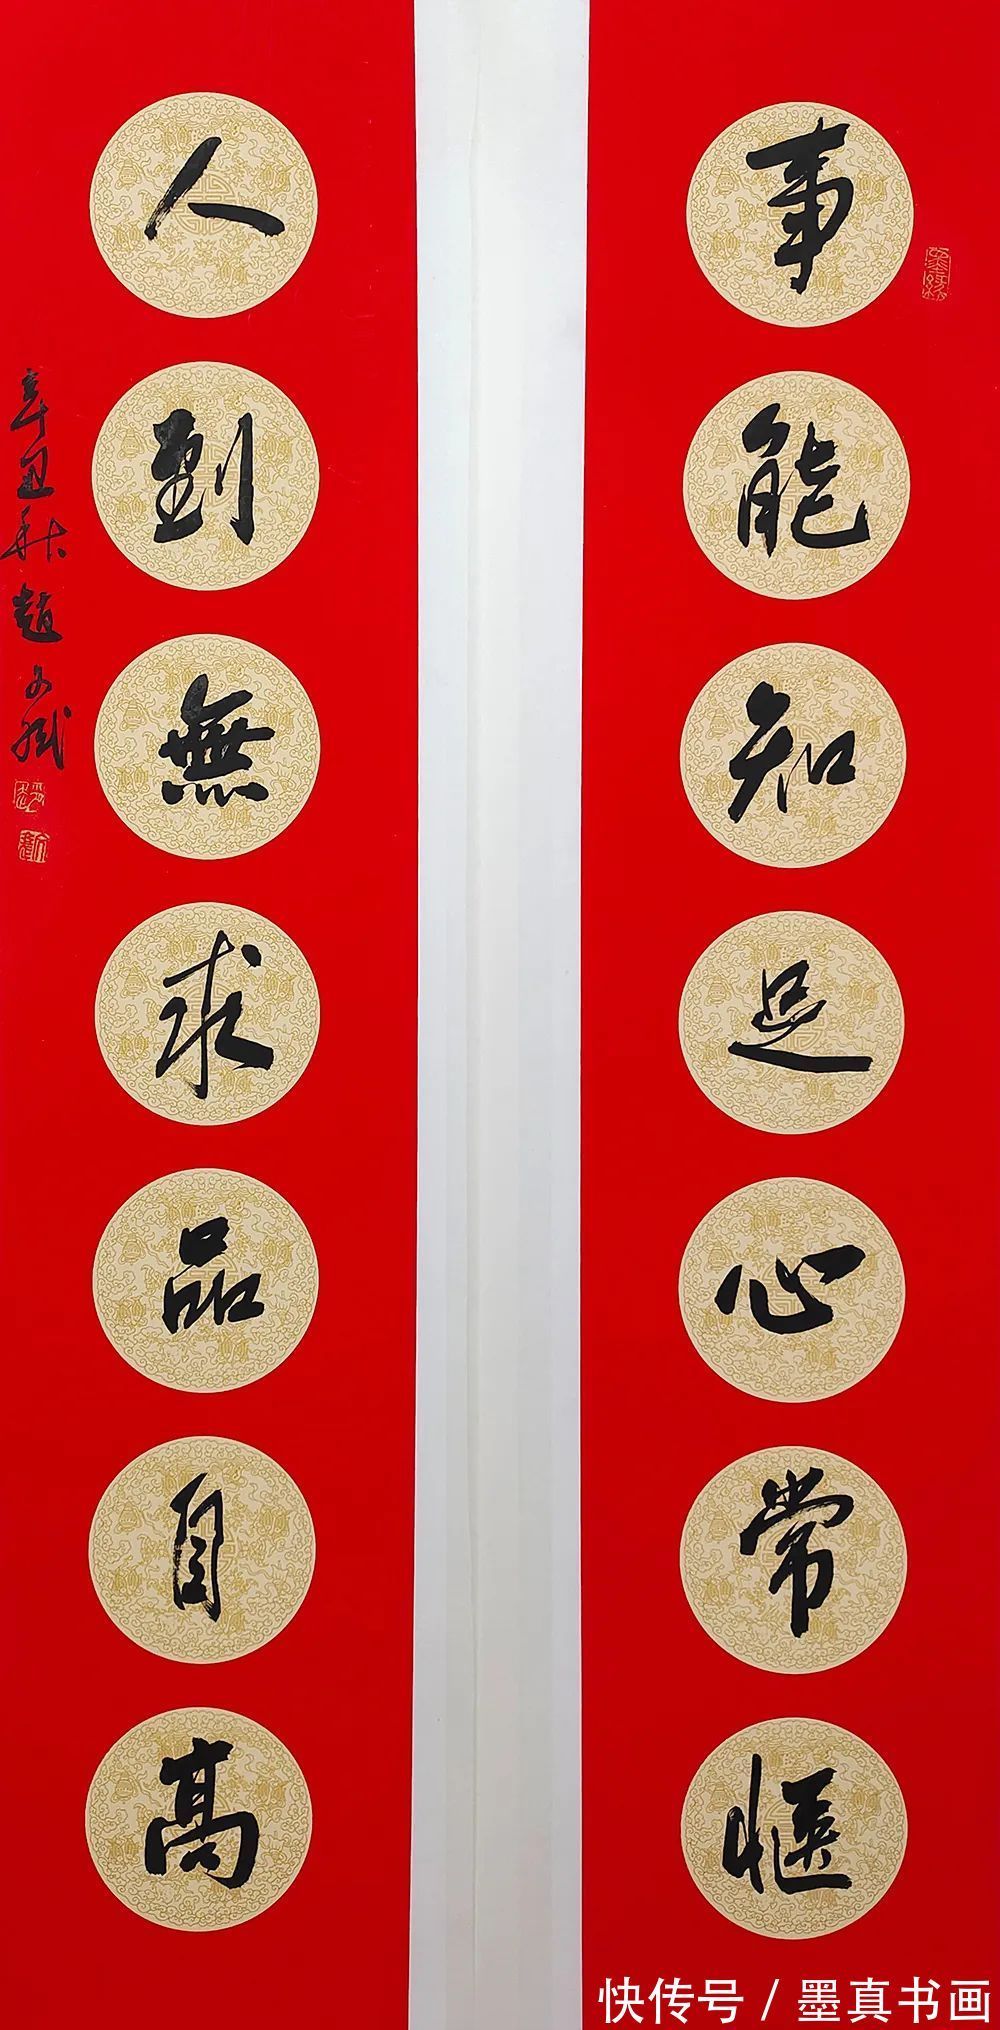 事能知足心常愜
人到無求品自高
辛丑秋趙
快传号 / 墨真书画